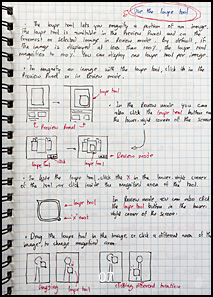 Use the loupe tool
The loupe tool lets you magnify a portion of an image.
The loupe tool is available in the Preview Panel and on the
foremost or selected image in Review mode. By default, if
the image is displayed at less than 100%, the loupe tool
magnifies to 100%. You can display one loupe tool per image.
• To magnify an image with the loupe tool, click it in the
Preview Panel or in Review mode.
loupe tool
• In the Review mode you can
also click the loupe tool button in
the lower-right corner of the screen
Preview Panel
click
Review mode
loupe tool
loupe tool
• To hide the loupe tool, click the X in the lower-right corner
of the tool or click inside the magnified area of the tool.
loupe tool
"X" button
In Review mode, you can also click
the loupe tool button in the lower-
right corner of the screen.
• Drag the loupe tool in the image, or click a different area of the
image, to change magnified area.
dragging
loupe tool
clicking different location